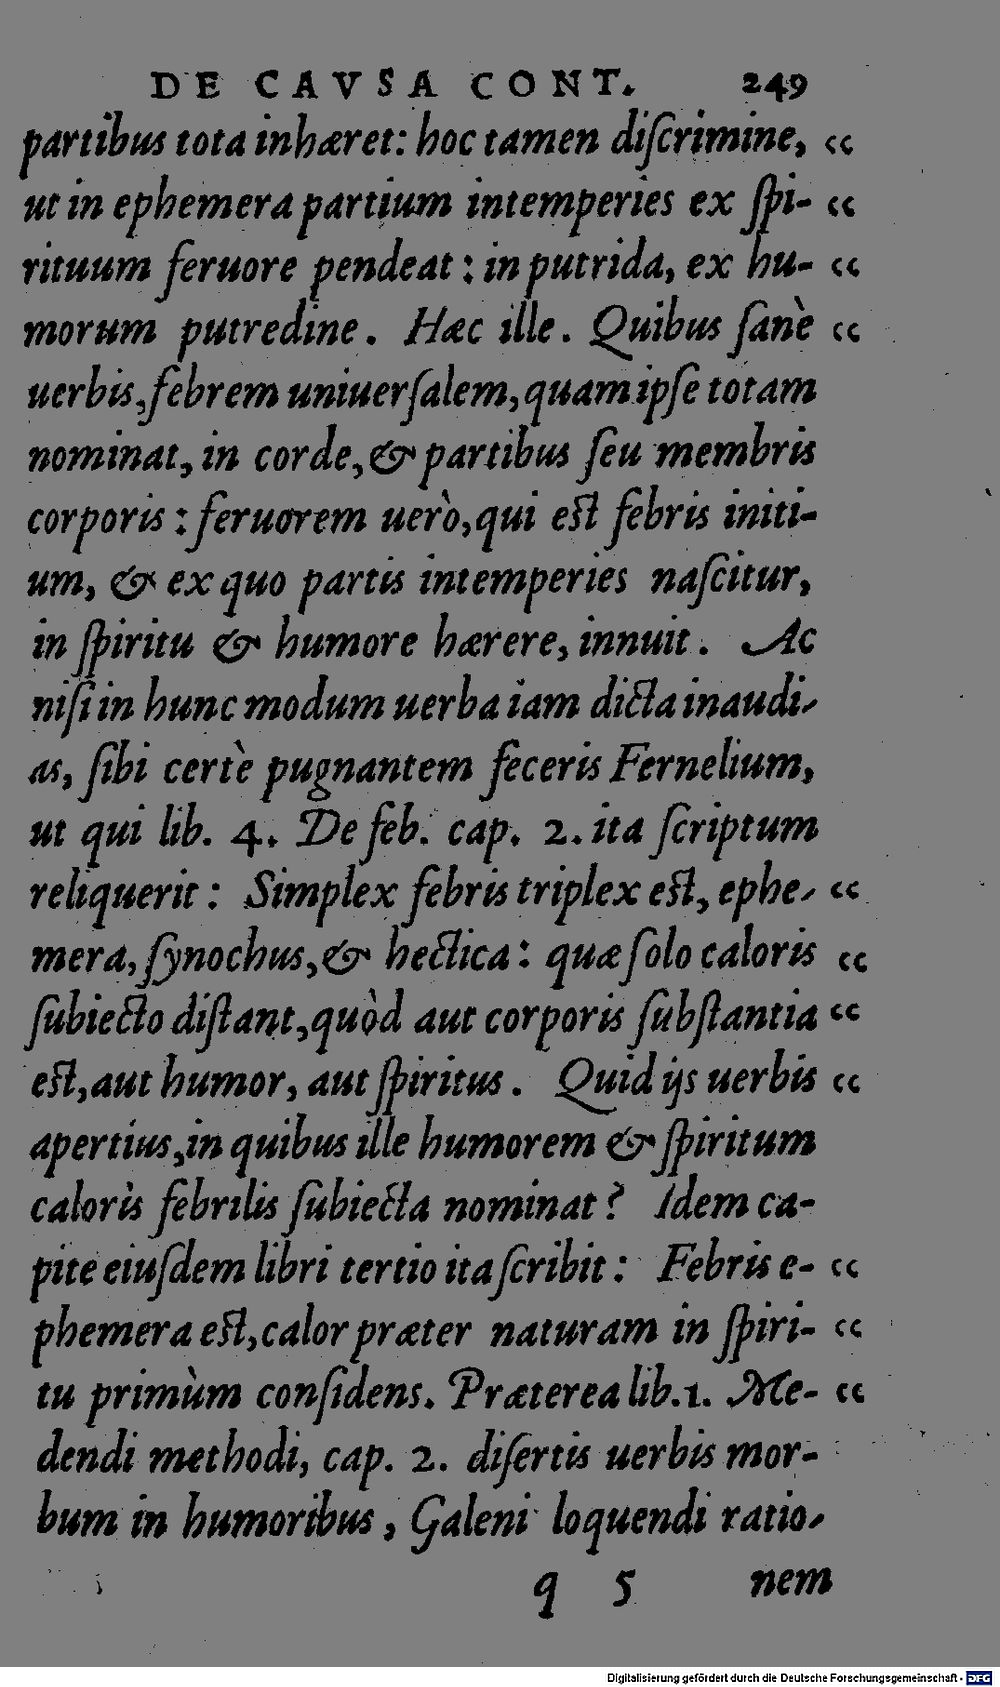 DE CAVSA CONT. 249
partibus tota inhæret: hoc tamen diſcrimine, “
ut in ephemera partium intemperies ex ſpi- “
rituum feruore pendeat : in putrida, ex hu- “
morum putredine. Hæc ille. Quibus ſanè “
uerbis, febrem uniuerſalem, quam ipſe totam
nominat, in corde, & partibus ſeu membris
corporis : feruorem uerò, qui eſt febris initi-
um, & ex quo partis intemperies naſcitur,
in ſpiritu & humore hærere, innuit. Ac
niſi in hunc modum uerba iam dicta inaudi-
as, ſibi certè pugnantem feceris Fernelium,
ut qui lib. 4. De feb. cap. 2. ita ſcriptum
reliquerit : Simplex febris triplex eſt, ephe- “
mera, ſynochus, & hectica : quæ ſolo caloris “
ſubiecto diſtant, quòd aut corporis ſubſtantia “
eſt, aut humor, aut ſpiritus. Quid ijs uerbis “
apertius, in quibus ille humorem & ſpiritum
caloris febrilis ſubiecta nominat? Idem ca-
pite eiuſdem libri tertio ita ſcribit : Febris e- “
phemera eſt, calor præter naturam in ſpiri- “
tu primùm conſidens. Præterea lib. 1. Me- “
dendi methodi, cap. 2. diſertis uerbis mor-
bum in humoribus, Galeni loquendi ratio-
q 5 nem
Digitalisierung gefördert durch die Deutsche Forschungsgemeinschaft - DFG